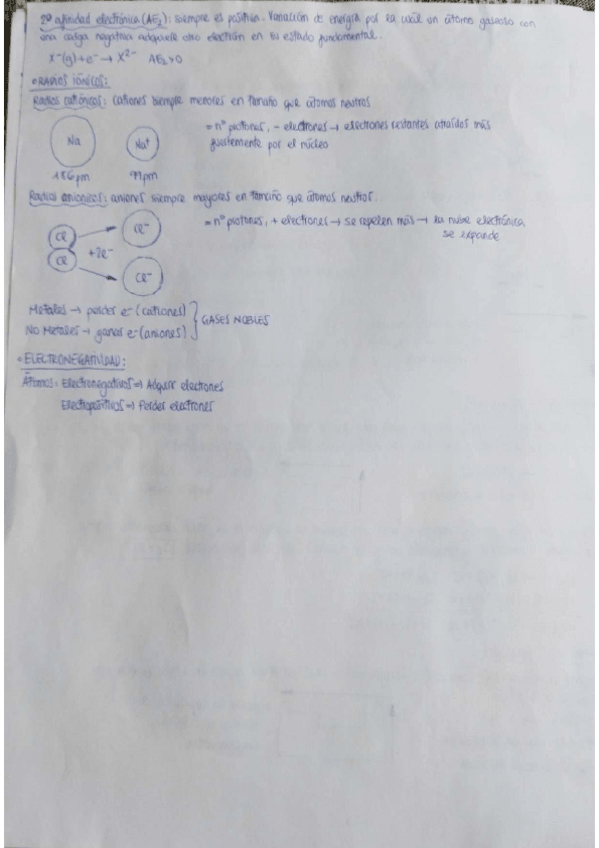 2ª afinidad electrónica (AE₂): siempre es positiva. Variación de energía por la cual un átomo gaseoso con
una carga negativa adquiere otro electrón en su estado fundamental.
X⁻(g) + e⁻ → X²⁻ AE₂>0
• RADIOS IÓNICOS:
Radios catiónicos: cationes siempre menores en tamaño que átomos neutros
Na Na⁺
= nº protones, - electrones → electrones restantes atraídos más
fuertemente por el núcleo
186pm 99pm
Radios aniónicos: aniones siempre mayores en tamaño que átomos neutros.
Cl Cl⁻
= nº protones, + electrones → se repelen más → la nube electrónica
se expande
+2e⁻
Cl Cl⁻
Metales → perder e⁻ (cationes)
GASES NOBLES
No Metales → ganar e⁻ (aniones)
• ELECTRONEGATIVIDAD:
Átomos: Electronegativos ⇒ Adquirir electrones
Electropositivos ⇒ Perder electrones